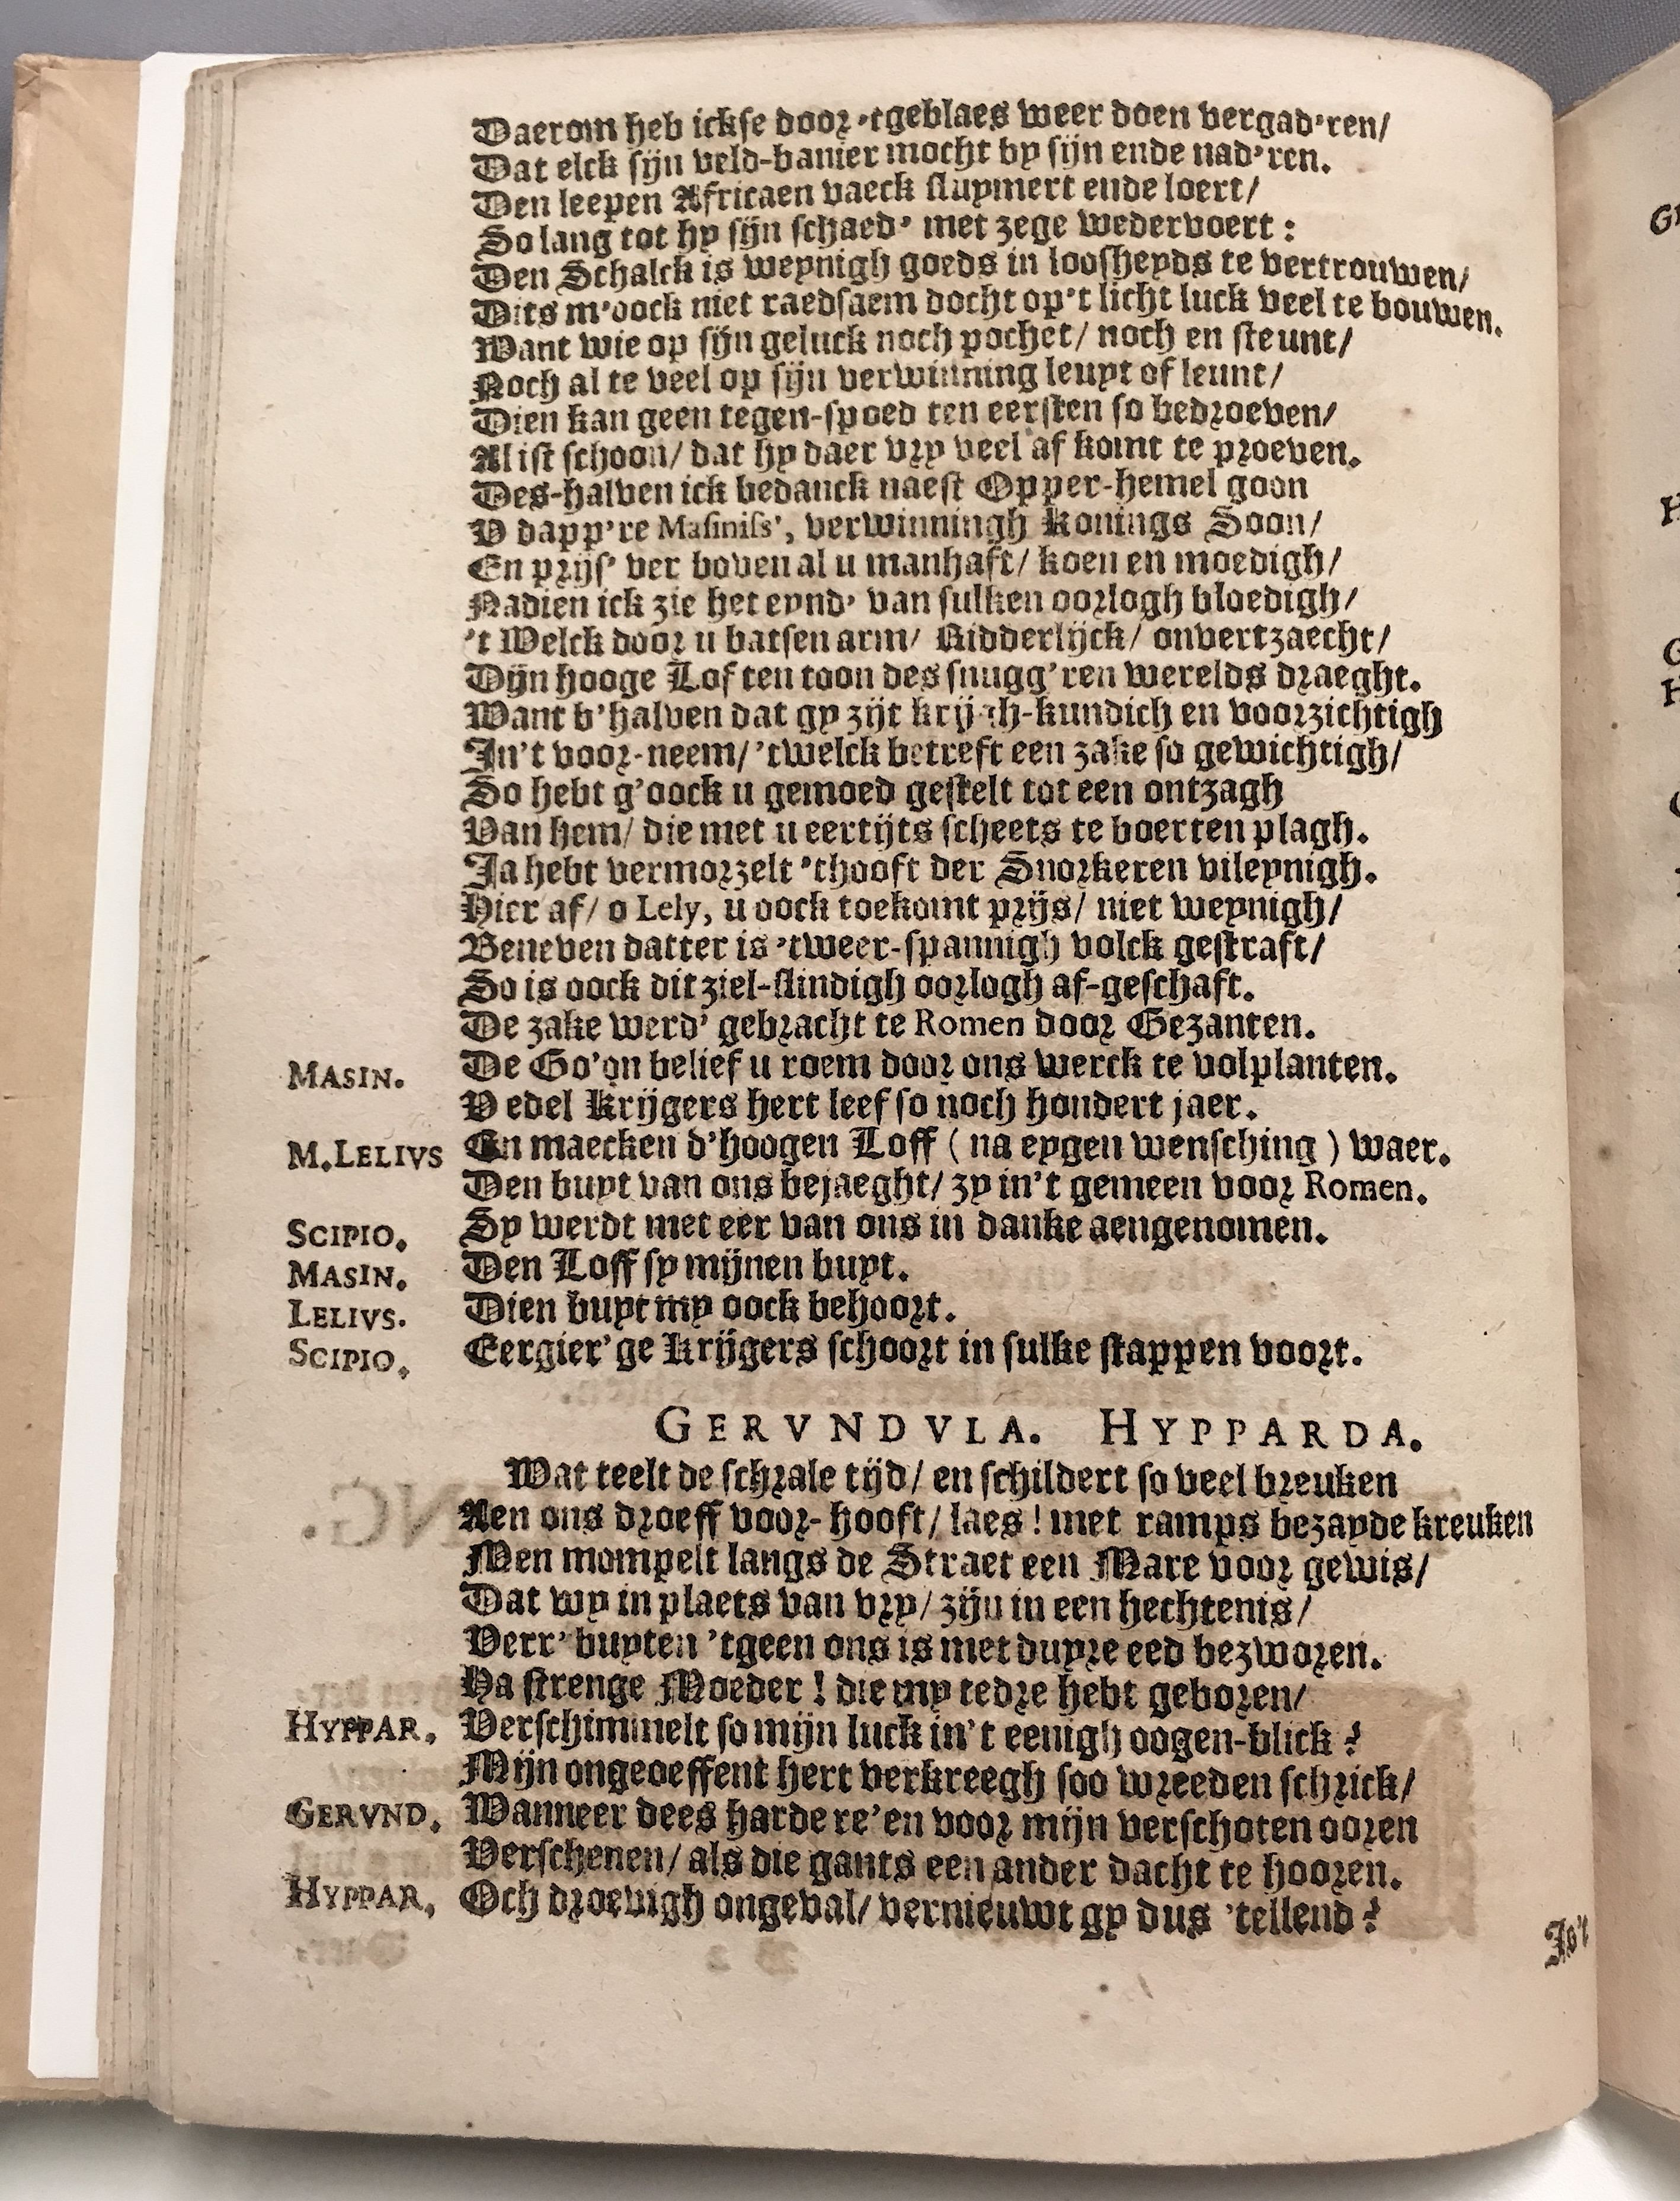 Daerom heb ickse door 'tgeblaes weer doen vergad'ren/
Dat elck sijn veld-banier mocht by sijn ende nad'ren.
Den leepen Africaen vaeck sluymert ende loert/
So lang tot hy sijn schaed' met zege wedervoert:
Den Schalck is weynigh goeds in loosheyds te vertrouwen/
Dits m'oock niet raedsaem docht op't licht luck veel te bouwen.
Want wie op sijn geluck noch pochet/ noch en steunt/
Noch al te veel op sijn verwinning leuyt of leunt/
Dien kan geen tegen-spoed ten eersten so bedroeven/
Al ist schoon/ dat hy daer vry veel af komt te proeven.
Des-halven ick bedanck naest Opper-hemel goon
V dapp're Masiniss', verwinningh Konings Soon/
En prijs' ver boven al u manhaft/ koen en moedigh/
Nadien ick zie het eynd' van sulken oorlogh bloedigh/
't Welck door u batsen arm/ Ridderlijck/ onvertzaecht/
Dijn hooge Lof ten toon des snugg'ren werelds draeght.
Want b'halven dat gy zijt krijgh-kundich en voorzichtigh
In't voor-neem/ 'twelck betreft een zake so gewichtigh/
So hebt g'oock u gemoed gestelt tot een ontzagh
Van hem/ die met u eertijts scheets te boerten plagh.
Ja hebt vermorzelt 'thooft der Snorkeren vileynigh.
Hier af/ o Lely, u oock toekomt prijs/ niet weynigh/
Beneven datter is 'tweer-spannigh volck gestraft/
So is oock dit ziel-slindigh oorlogh af-geschaft.
De zake werd' gebracht te Romen door Gezanten.
MASIN. De Go'on belief u roem door ons werck te volplanten.
V edel Krijgers hert leef so noch hondert jaer.
M.LELIVS En maecken d'hoogen Loff ( na eygen wensching ) waer.
Den buyt van ons bejaeght/ zy in't gemeen voor Romen.
SCIPIO. Sy werdt met eer van ons in danke aengenomen.
MASIN. Den Loff sy mijnen buyt.
LELIVS. Dien buyt my oock behoort.
SCIPIO. Eergier'ge Krijgers schoort in sulke stappen voort.
GERVNDVLA. HYPPARDA.
Wat teelt de schrale tijd/ en schildert so veel breuken
Aen ons droeff voor-hooft/ laes! met ramps bezayde kreuken
Men mompelt langs de Straet een Mare voor gewis/
Dat wy in plaets van vry/ zijn in een hechtenis/
Verr' buyten 'tgeen ons is met duyre eed bezworen.
Ha strenge Moeder! die my tedre hebt geboren/
HYPPAR. Verschimmelt so mijn luck in't eenigh oogen-blick?
Mijn ongeoeffent hert verkreegh soo wreeden schrick/
GERVND. Wanneer dees harde re'en voor mijn verschoten ooren
Verschenen/ als die gants een ander dacht te hooren.
HYPPAR. Och droevigh ongeval/ vernieuwt gy dus 'tellend?
Is't